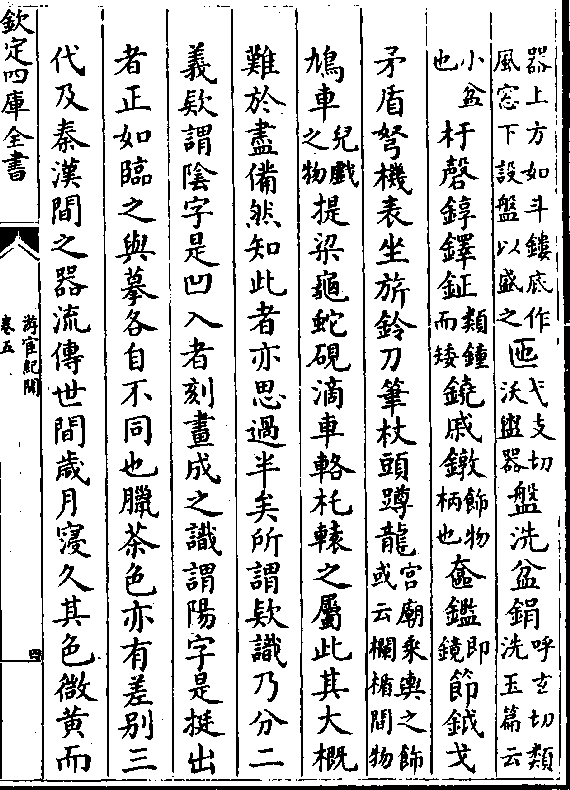 器上方如斗鏤底作風窓下設盤以盛之匜弋支切沃盥器盤洗盆鋗呼玄切類洗玉篇云
小盆也杅磬錞鐸鉦類鐘而矮鐃戚鐓飾物柄也奩鑑即鏡節鉞戈
矛盾弩機表坐旂鈴刀筆杖頭蹲龍宮廟乘輿之飾或云欄楯間物
鳩車兒戲之物提梁龜蛇硯滴車輅托轅之屬此其大概
難於盡備然知此者亦思過半矣所謂欵識乃分二
義欵謂陰字是凹入者刻畫成之識謂陽字是挺出
者正如臨之與摹各自不同也臘茶色亦有差别三
代及秦漢間之器流傳世間歳月寖久其色微黄而
欽定四庫全書
游宦紀聞
卷五
四